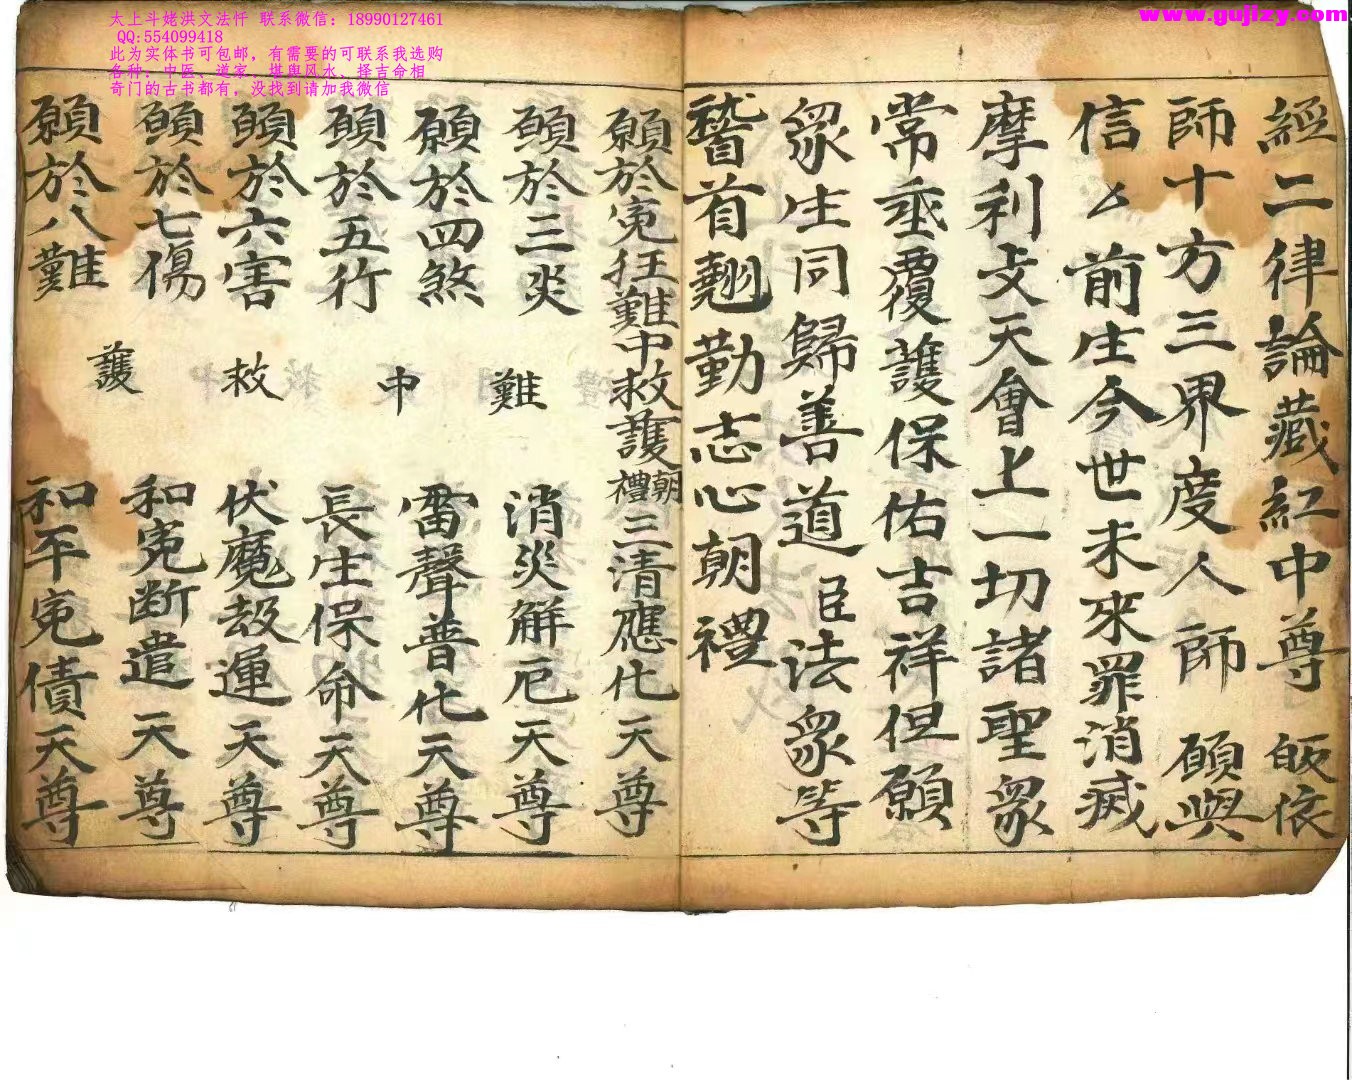 太上斗姥洪文法忏 联系微信：18990127461
QQ:554099418
此为实体书可包邮，有需要的可联系我选购
各种：中医、道家、堪舆风水、择吉命相
奇门的古书都有，没找到请加我微信
www.gujizy.com
經二律論藏紅中尊 皈依
師十方三界度人師 願與
信〻前生今世未來罪消滅
摩利攴天會上一切諸聖眾
常垂覆護保佑吉祥但願
眾生同歸善道 臣法眾等
稽首翹勤志心朝禮
願於寃枉難中救護朝禮三清應化天尊
願於三災 難 消災解厄天尊
願於四煞 雷聲普化天尊
願於五行 中 長生保命天尊
願於六害 救 伏魔劾運天尊
願於七傷 和寃断遣天尊
願於八難 護 和平寃債天尊